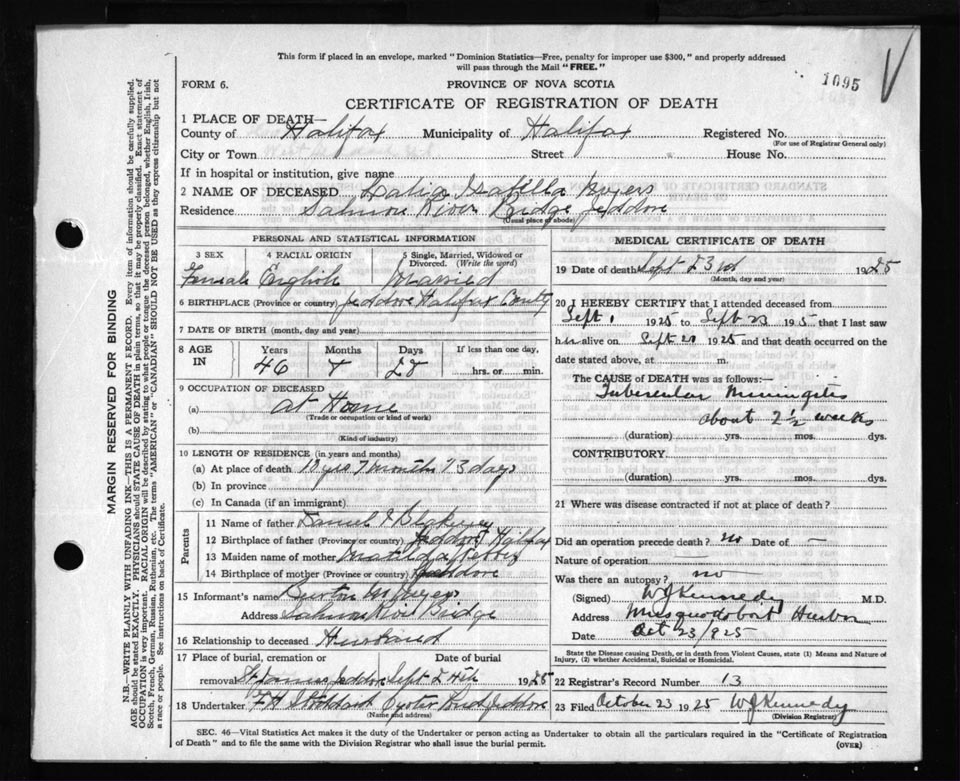 This form if placed in an envelope, marked "Dominion Statistics—Free, penalty for improper use $300," and properly addressed
will pass through the Mail "FREE."
1095
FORM 6.
PROVINCE OF NOVA SCOTIA
CERTIFICATE OF REGISTRATION OF DEATH
1 PLACE OF DEATH—
County of Halifax Municipality of Halifax Registered No.
(For use of Registrar General only)
City or Town Street House No.
If in hospital or institution, give name
2 NAME OF DECEASED Myers
Residence Salmon River Bridge Jeddore
(Usual place of abode)
PERSONAL AND STATISTICAL INFORMATION
3 SEX 4 RACIAL ORIGIN 5 Single, Married, Widowed or
Divorced. (Write the word)
Female English Married
6 BIRTHPLACE (Province or country) Jeddore Halifax County
7 DATE OF BIRTH (month, day and year)
8 AGE IN Years Months Days If less than one day,
46 28 hrs. or min.
9 OCCUPATION OF DECEASED
(a) At Home
(Trade or occupation or kind of work)
(b)
(Kind of industry)
10 LENGTH OF RESIDENCE (in years and months)
(a) At place of death yrs 7 months 73 days
(b) In province
(c) In Canada (if an immigrant)
Parents
11 Name of father Daniel
12 Birthplace of father (Province or country) Jeddore Halifax
13 Maiden name of mother Matilda
14 Birthplace of mother (Province or country) Jeddore
15 Informant's name Burton Myers
Address Salmon River Bridge
16 Relationship to deceased Husband
17 Place of burial, cremation or Date of burial
removal Jeddore Sept 24th 1925
18 Undertaker F H Stoddard Oyster Pond Jeddore
(Name and address)
MEDICAL CERTIFICATE OF DEATH
19 Date of death Sept 23rd 1925
(Month, day and year)
20 I HEREBY CERTIFY that I attended deceased from
Sept 1 1925 to Sept 23 1925 that I last saw
h alive on Sept 20 1925 and that death occurred on the
date stated above, at m.
The CAUSE of DEATH was as follows:—
Tubercular Miningitis
about 2½ weeks
(duration) yrs. mos. dys.
CONTRIBUTORY.
(duration) yrs. mos. dys.
21 Where was disease contracted if not at place of death?
Did an operation precede death? no Date of —
Nature of operation —
Was there an autopsy? no
(Signed) W J Kennedy M.D.
Address Musquodoboit Harbor
Date Oct 23/925
State the Disease causing Death, or in death from Violent Causes, state (1) Means and Nature of
Injury, (2) whether Accidental, Suicidal or Homicidal.
22 Registrar's Record Number 13
23 Filed October 23 1925 W J Kennedy
(Division Registrar)
SEC. 46—Vital Statistics Act makes it the duty of the Undertaker or person acting as Undertaker to obtain all the particulars required in the "Certificate of Registration
of Death" and to file the same with the Division Registrar who shall issue the burial permit.
(OVER)
MARGIN RESERVED FOR BINDING
N.B.—WRITE PLAINLY WITH UNFADING INK—THIS IS A PERMANENT RECORD. Every item of information should be carefully supplied.
AGE should be stated EXACTLY. PHYSICIANS should STATE CAUSE OF DEATH in plain terms, so that it may be properly classified. Exact statement of
OCCUPATION is very important. RACIAL ORIGIN will be described by stating to what people or tongue the deceased person belonged, whether English, Irish,
Scotch, French, German, Russian, Ruthenian, etc. The terms "AMERICAN" or "CANADIAN" SHOULD NOT BE USED as they express citizenship but not
a race or people. See instructions on back of Certificate.